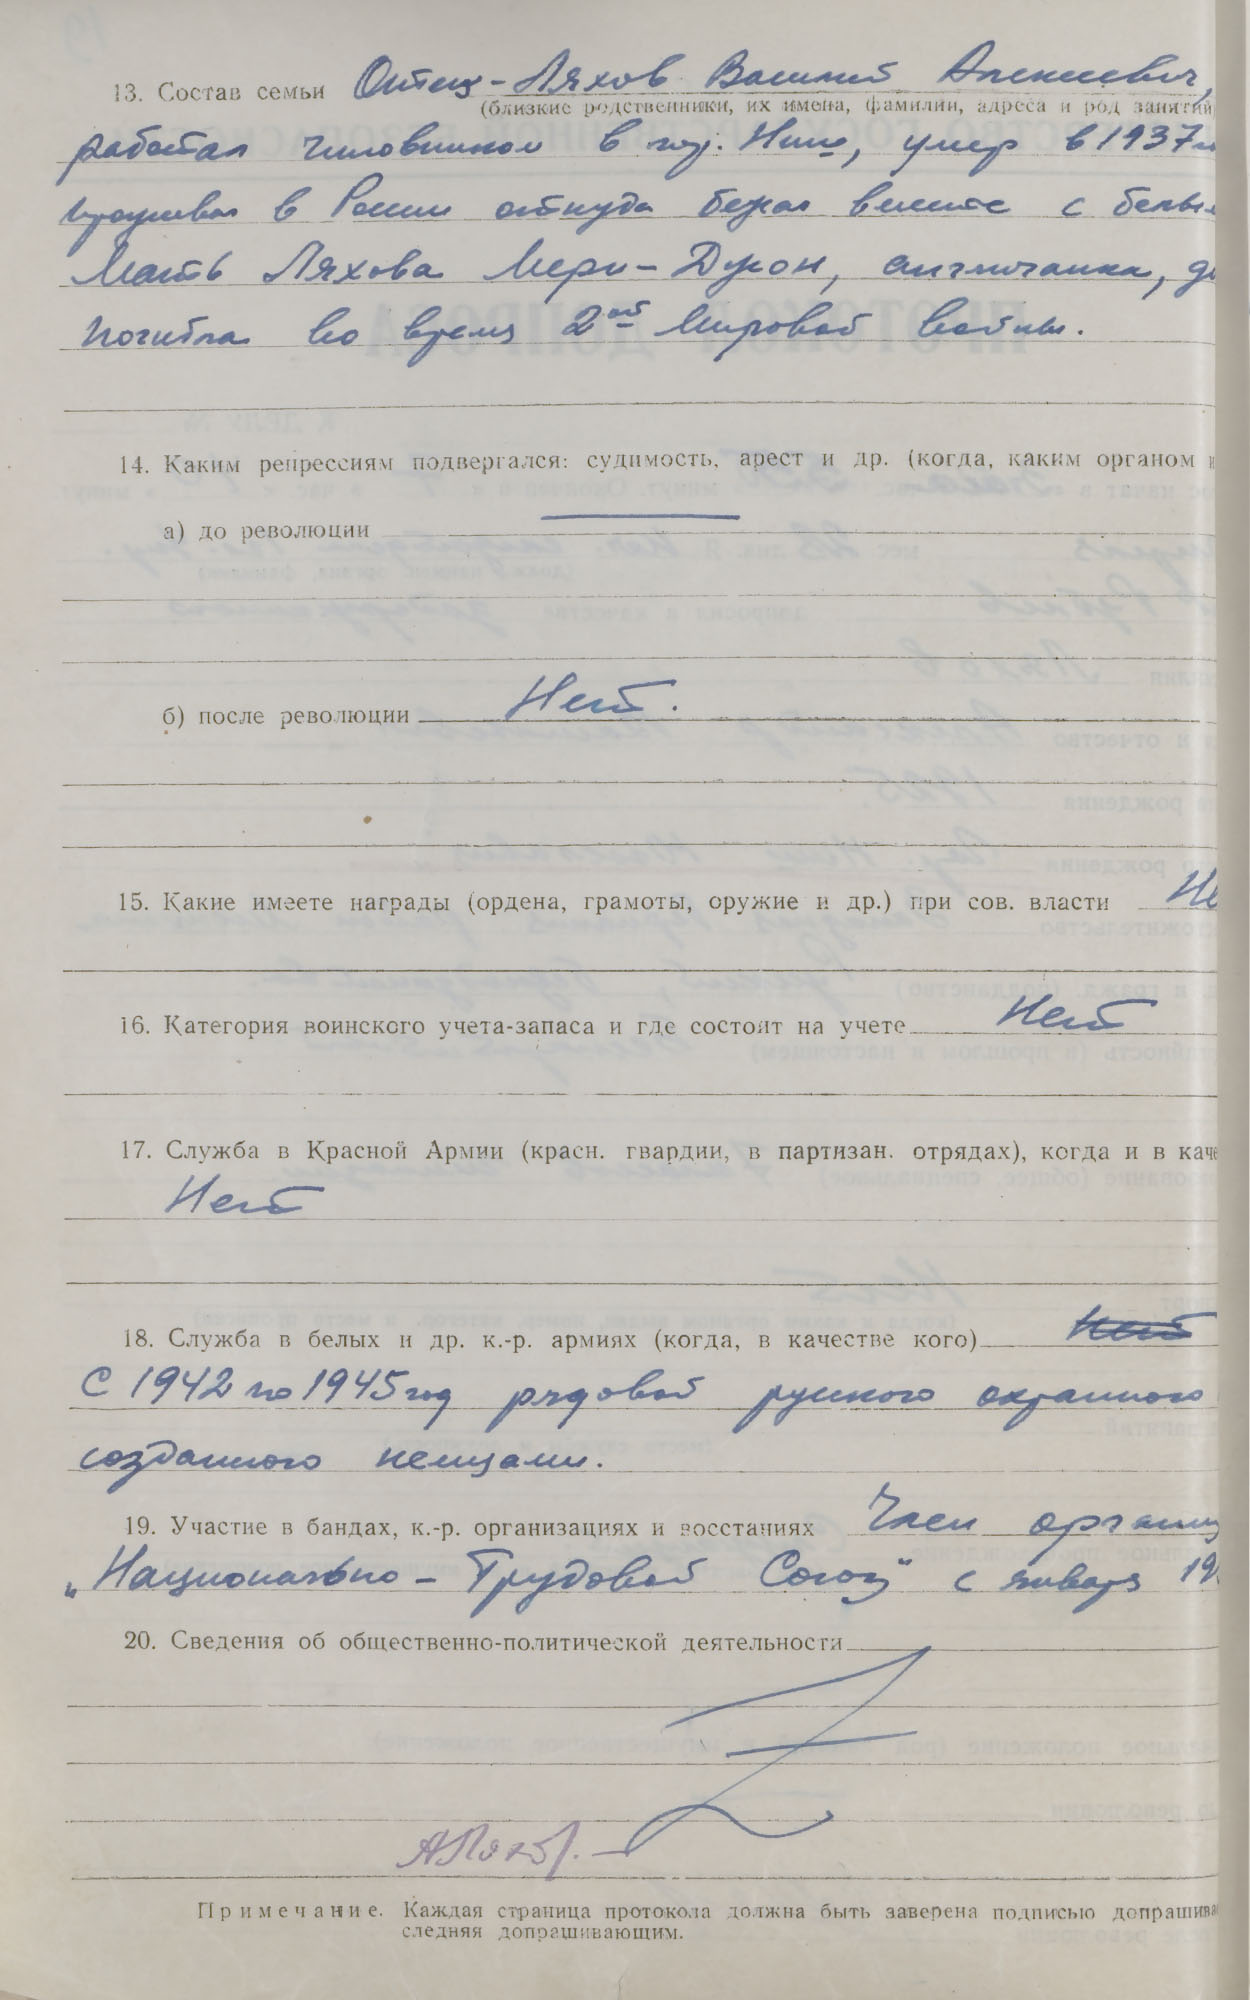 13. Состав семьи Отец-Ляхов Василий Алексеевич,
(близкие родственники, их имена, фамилии, адреса и род занятий
работал чиновником в гор. Ниш, умер в 1937
проживал в России откуда бежал вместе с белы
Мать Ляхова Мери-Джон, англичанка,
погибла во время 2ой Мировой войны.
14. Каким репрессиям подвергался: судимость, арест и др. (когда, каким органом и
а) до революции —
б) после революции Нет.
15. Какие имеете награды (ордена, грамоты, оружие и др.) при сов. власти Не
16. Категория воинского учета-запаса и где состоит на учете Нет
17. Служба в Красной Армии (красн. гвардии, в партизан. отрядах), когда и в каче
Нет
18. Служба в белых и др. к.-р. армиях (когда, в качестве кого) Нет
С 1942 по 1945 год рядовой русского охранного
созданного немцами.
19. Участие в бандах, к.-р. организациях и восстаниях Член органи
„Национально-Трудовой Союз" с января 19
20. Сведения об общественно-политической деятельности
АЛяхов
Примечание. Каждая страница протокола должна быть заверена подписью допрашива
следняя допрашивающим.